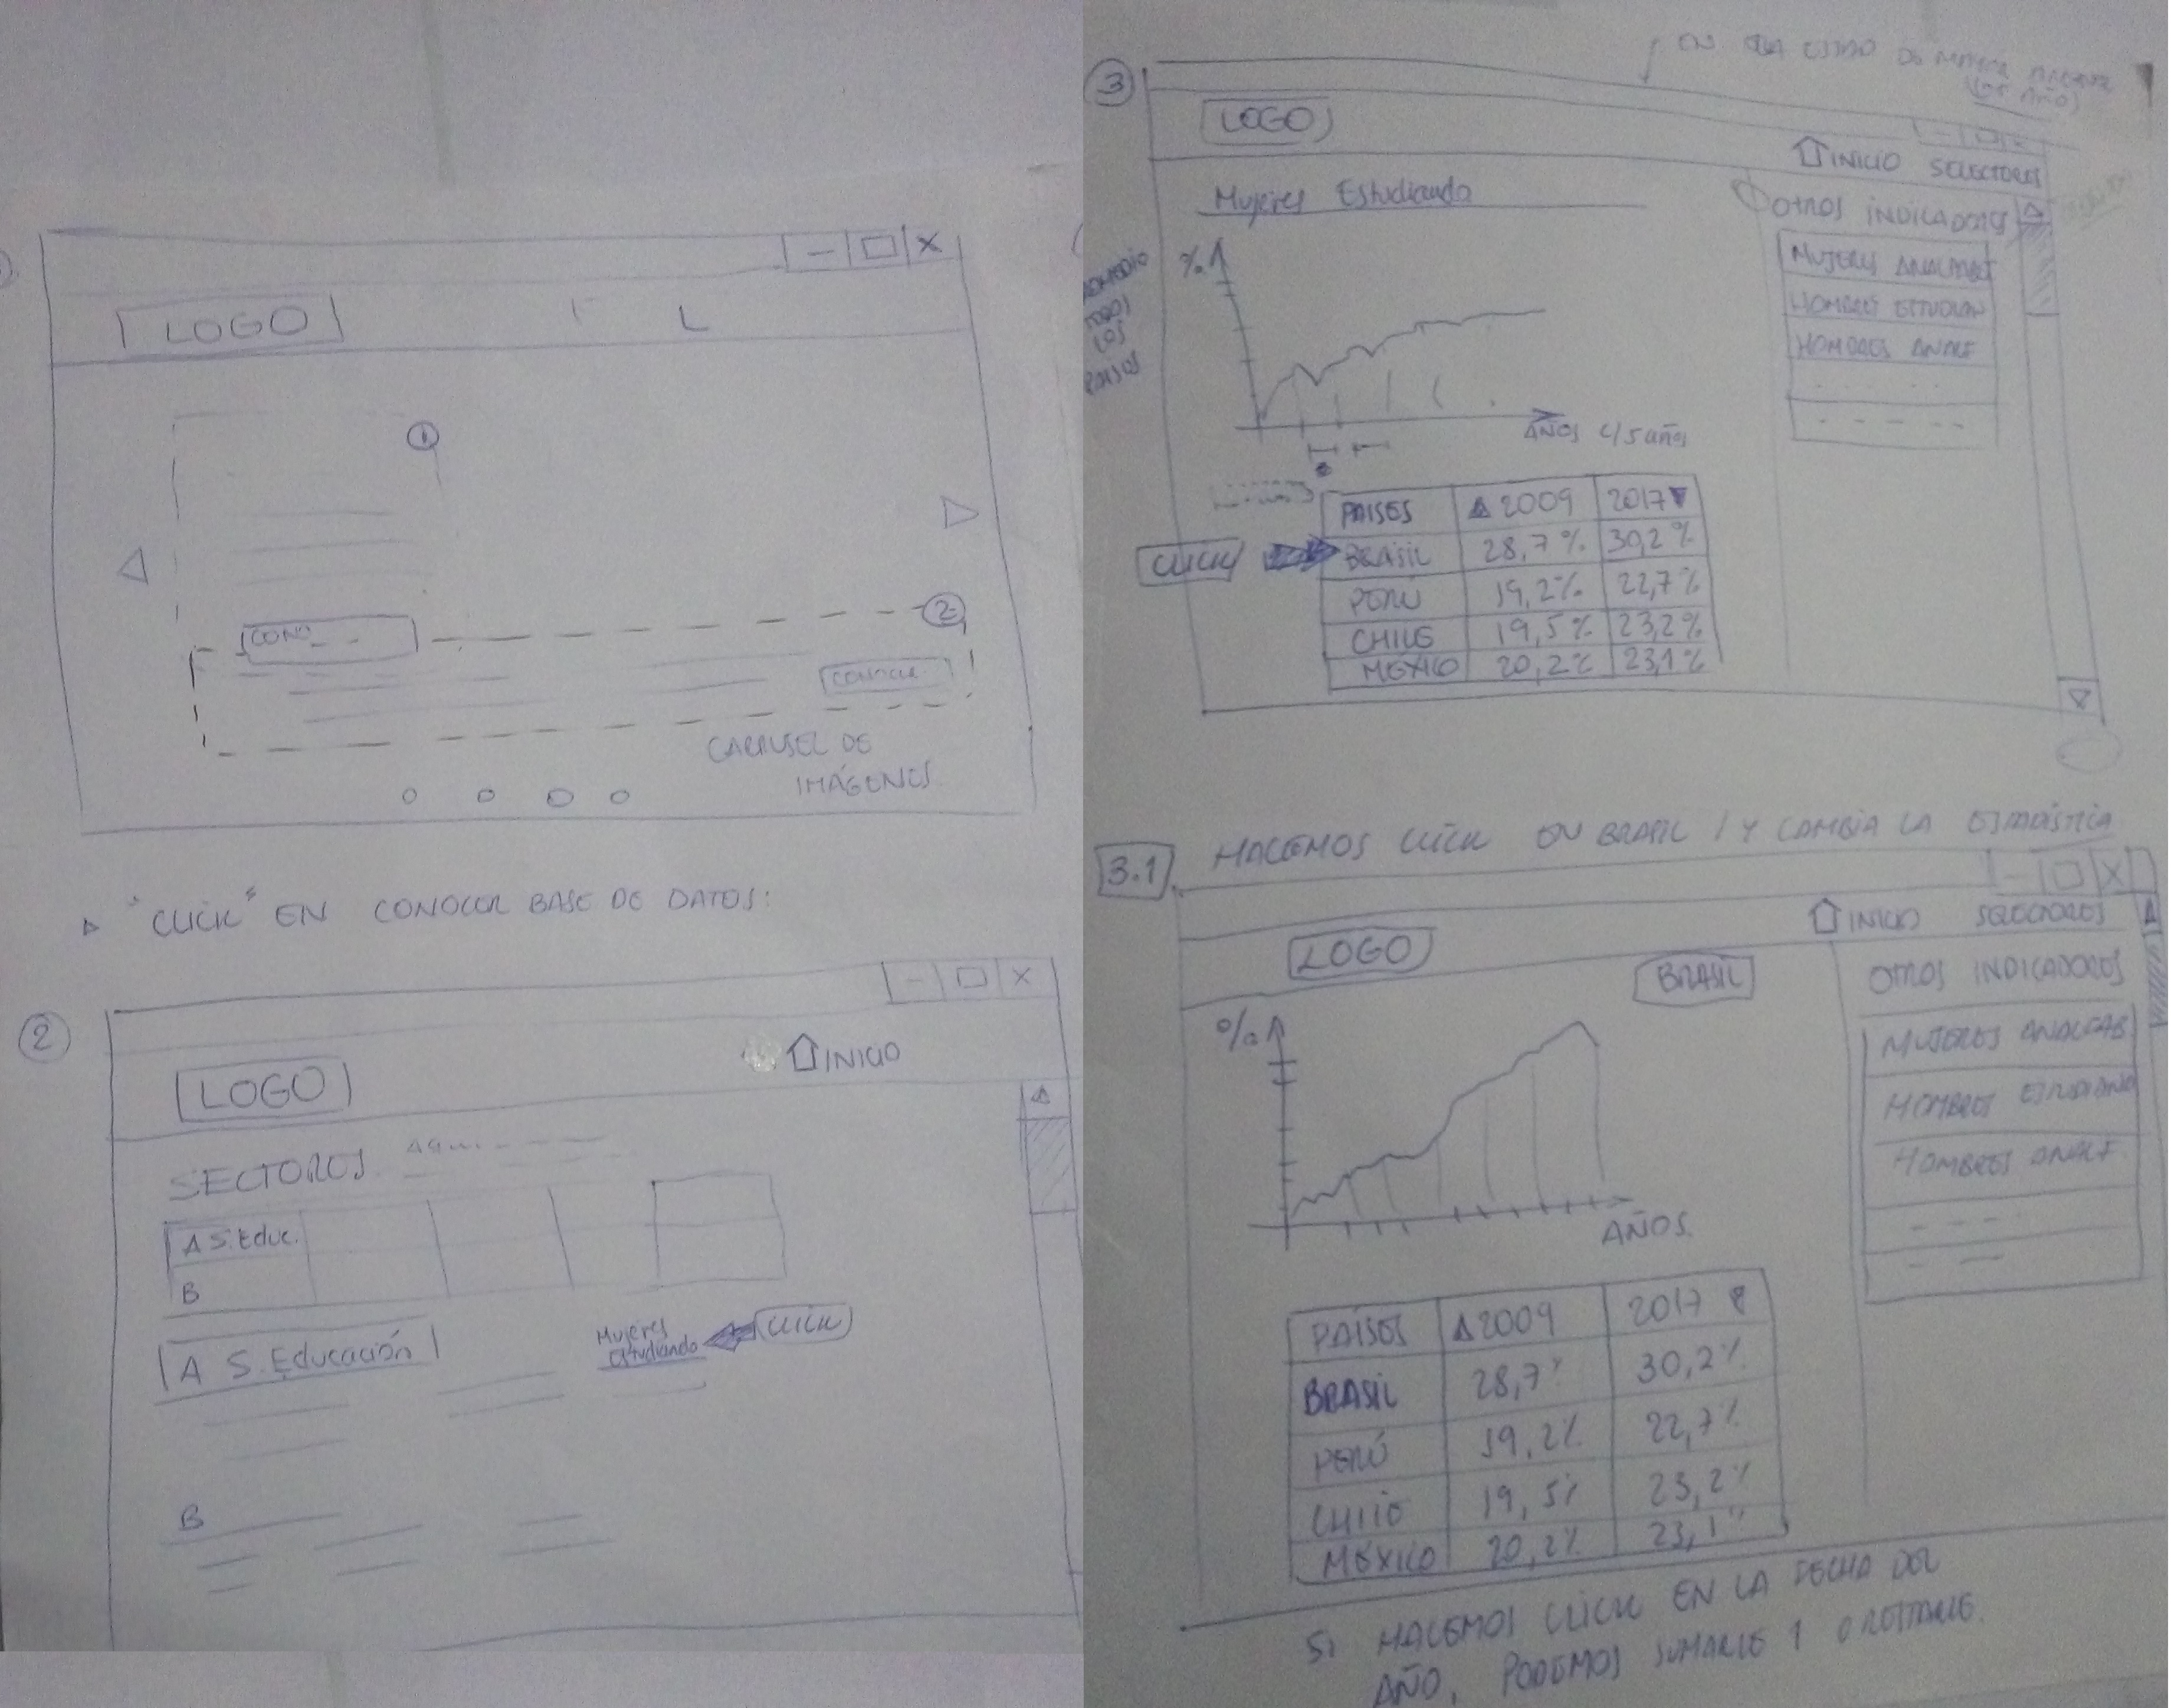 LOGO
1
CONO
2
CONOCER
CARRUSEL DE
IMÁGENES
"CLICK" EN CONOCER BASE DE DATOS:
2
INICIO
LOGO
SECTORES
A S. Educ.
B
A S. Educación
Mujeres
Estudiando
CLICK
B
3
LOGO
INICIO SELECTORES
Mujeres Estudiando
OTROS INDICADORES
MUJERES ANALFABET
HOMBRES ESTUDIAN
HOMBRES ANALF
%
TODOS
LOS
PAISES
AÑOS c/5 años
PAISES 2009 2017
CLICK
BRASIL 28,7% 30,2%
PERÚ 19,2% 22,7%
CHILE 19,5% 23,2%
MÉXICO 20,2% 23,1%
3.1 HACEMOS CLICK EN BRASIL / Y CAMBIA LA ESTADÍSTICA
INICIO SELECTORES
LOGO
BRASIL
OTROS INDICADORES
MUJERES ANALFAB
HOMBRES ESTUDIAND
HOMBRES ANALF.
%
AÑOS.
PAÍSES 2009 2017
BRASIL 28,7% 30,2%
PERÚ 19,2% 22,7%
CHILE 19,5% 23,2%
MÉXICO 20,2% 23,1%
SI HACEMOS CLICK EN LA FECHA DEL
AÑO, PODEMOS SUMARLE 1 O RESTARLE.